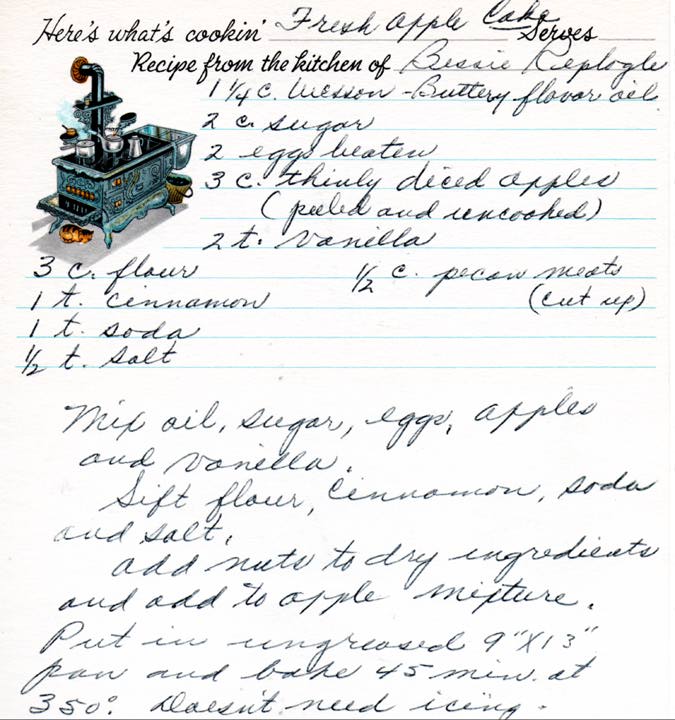 Here's what's cookin' Fresh Apple Cake Serves
Recipe from the kitchen of Bessie Replogle
1 1/4 c. Wesson Buttery flavor oil
2 c. sugar
2 eggs beaten
3 c. thinly diced apples
(peeled and uncooked)
2 t. vanilla
3 c. flour 1/2 c. pecan meats
1 t. cinnamon (cut up)
1 t. soda
1/2 t. salt
Mix oil, sugar, eggs, apples
and vanilla.
Sift flour, cinnamon, soda
and salt.
add nuts to dry ingredients
and add to apple mixture.
Put in ungreased 9"X13"
pan and bake 45 min. at
350°. Doesn't need icing.